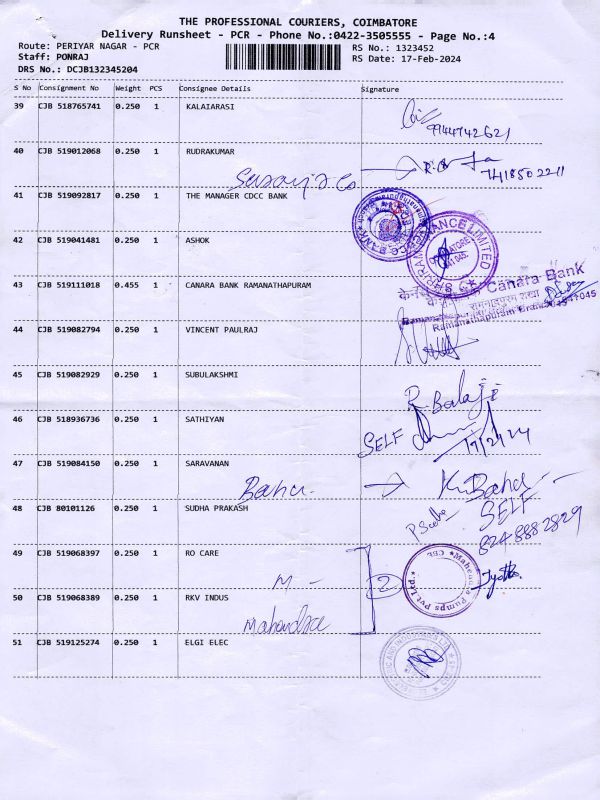 THE PROFESSIONAL COURIERS, COIMBATORE
Delivery Runsheet - PCR - Phone No.:0422-3505555 - Page No.:4
Route: PERIYAR NAGAR - PCR RS No.: 1323452
Staff: PONRAJ RS Date: 17-Feb-2024
DRS No.: DCJB132345204
S No Consignment No Weight PCS Consignee Details Signature
39 CJB 518765741 0.250 1 KALAIARASI
9944742621
40 CJB 519012068 0.250 1 RUDRAKUMAR
7418502211
41 CJB 519092817 0.250 1 THE MANAGER CDCC BANK
42 CJB 519041481 0.250 1 ASHOK
SHRIRAM FINANCE LIMITED
43 CJB 519111018 0.455 1 CANARA BANK RAMANATHAPURAM
Canara Bank
Ramanathapuram Branch 641045
44 CJB 519082794 0.250 1 VINCENT PAULRAJ
45 CJB 519082929 0.250 1 SUBULAKSHMI
R. Balaji
46 CJB 518936736 0.250 1 SATHIYAN
SELF 17/2/24
47 CJB 519084150 0.250 1 SARAVANAN
48 CJB 80101126 0.250 1 SUDHA PRAKASH
SELF
8248882829
49 CJB 519068397 0.250 1 RO CARE
M - 2
Mahendra Pumps Pvt Ltd CBE
Jyothi
50 CJB 519068389 0.250 1 RKV INDUS
Mahendra
51 CJB 519125274 0.250 1 ELGI ELEC